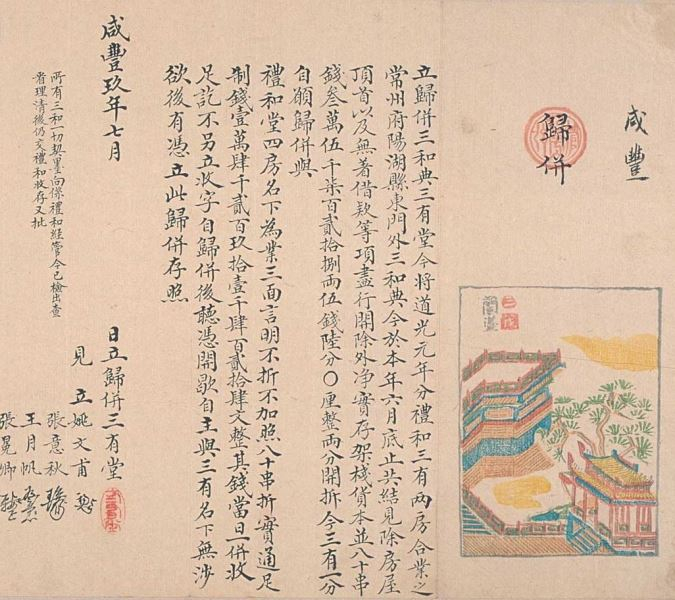 咸豐
歸併
立歸併三和典三有堂今將道光元年分禮和三有兩房合業之
常州府陽湖縣東門外三和典今於本年六月底止共結見除房屋
頂首以及無著借款等項盡行開除外净實存架棧貨本並八十串
錢叁萬伍千柒百貳拾捌兩伍錢陸分〇厘整兩分開拆今三有一分
自願歸併與
禮和堂四房名下為業三面言明不折不加照八十串折實通足
制錢壹萬肆千貳百玖拾壹千肆百貳拾肆文整其錢當日一併收
足訖不另立收字自歸併後聽憑開歇自主與三有名下無涉
欲後有憑立此歸併存照
咸豐玖年七月
日立歸併三有堂
所有三和一切契墨向係禮和經管今已檢出查
看理清後仍交禮和收存又批
見立姚文甫
張意秋
王月帆
張晃卿